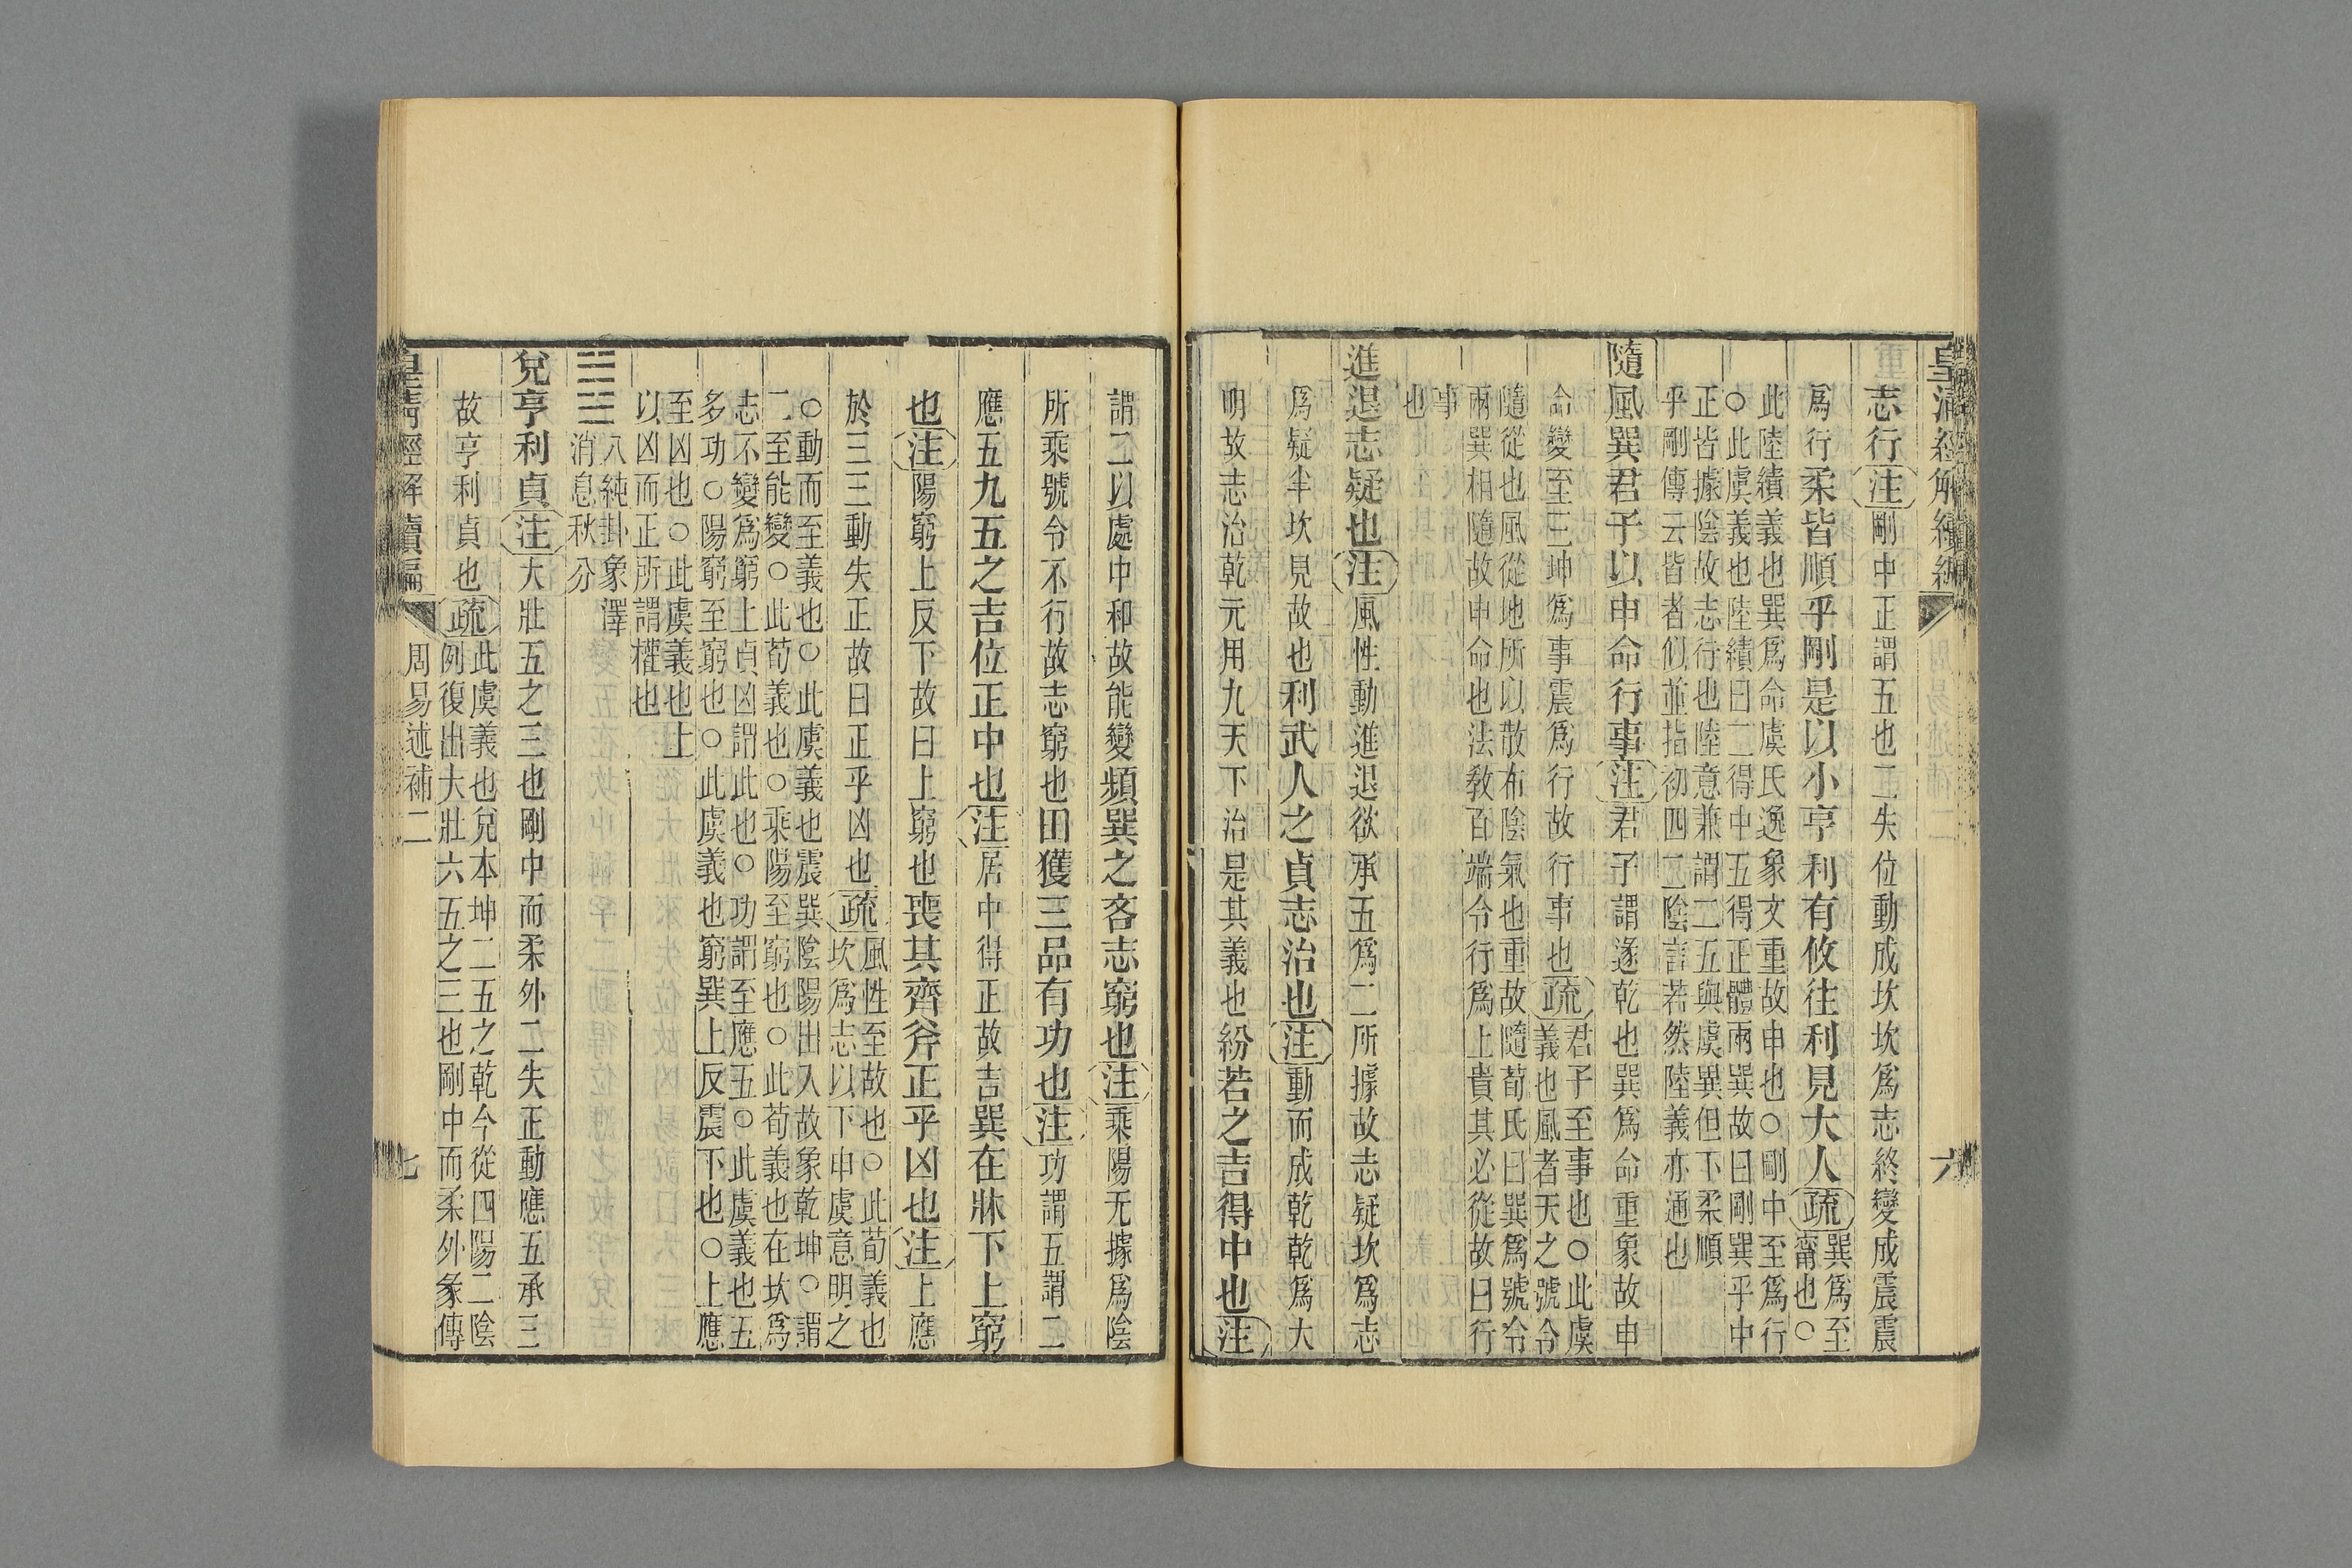 皇清經解續編
六
志行注剛中正謂五也二失位動成坎坎爲志終變成震震
爲行柔皆順乎剛是以小亨利有攸往利見大人疏巽爲至
甯也○
此陸績義也巽爲命虞氏逸象文重故申也○剛中至爲行
○此虞義也陸績曰二得中五得正體兩巽故曰剛巽乎中
正皆據陰故志行也陸意兼謂二五與虞異但下柔順
乎剛傳云皆者似並指初四二陰言若然陸義亦通也
隨風巽君子以申命行事注君子謂遂乾也巽爲命重象故申
命變至三坤爲事震爲行故行事也疏君子至事也○此虞
義也風者天之號令
隨從也風從地所以散布陰氣也重故隨荀氏曰巽爲號令
兩巽相隨故申命也法敎百端令行爲上貴其必從故曰行
事
也
進退志疑也注風性動進退欲承五爲二所據故志疑坎爲志
爲疑半坎見故也利武人之貞志治也注動而成乾乾爲大
明故志治乾元用九天下治是其義也紛若之吉得中也注
謂二以處中和故能變頻巽之吝志窮也注乘陽无據爲陰
所乘號令不行故志窮也田獲三品有功也注功謂五謂二
應五九五之吉位正中也注居中得正故吉巽在牀下上窮
也注陽窮上反下故曰上窮也喪其齊斧正乎凶也注上應
於三三動失正故曰正乎凶也疏風性至故也○此荀義也
坎爲志以下申虞意明之
○動而至義也○此虞義也震巽陰陽出入故象乾坤○謂
二至能變○此荀義也○乘陽至窮也○此荀義也在坎爲
志不變爲窮上貞凶謂此也○功謂至應五○此虞義也五
多功○陽窮至窮也○此虞義也窮巽上反震下也○上應
至凶也○此虞義也上
以凶而正所謂權也
八純卦象澤
消息秋分
兌亨利貞注大壯五之三也剛中而柔外二失正動應五承三
故亨利貞也疏此虞義也兌本坤二五之乾今從四陽二陰
例復出大壯六五之三也剛中而柔外彖傳
皇清經解續編
周易述補二
七